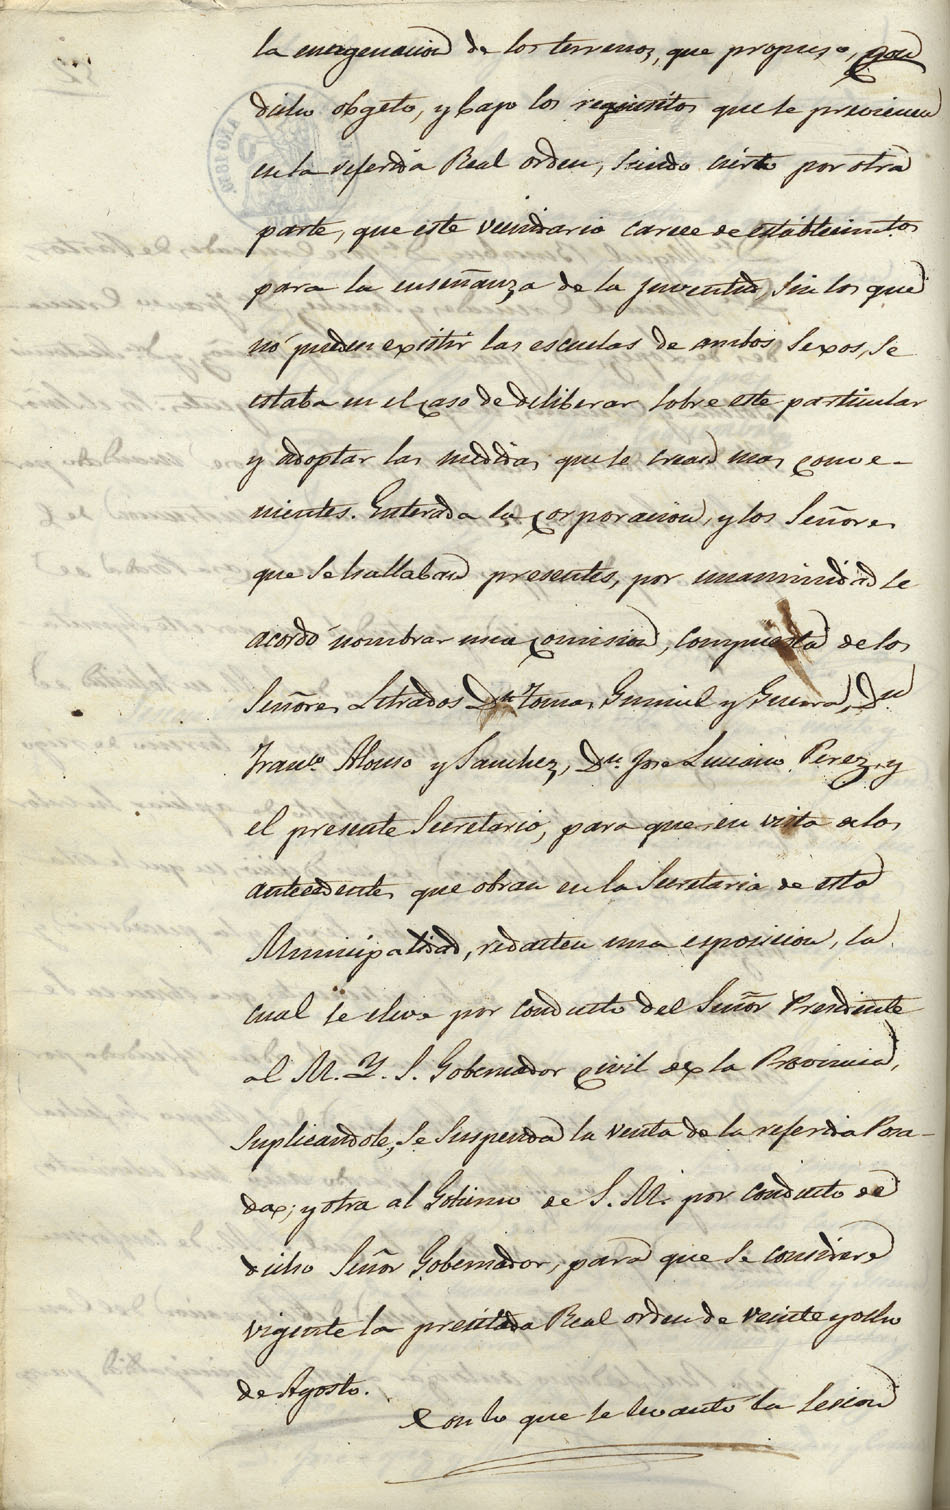 la enagenacion de los terrenos, que propuso, con
dicho obgeto, y bajo los requisitos que se previenen
en la referida Real orden, siendo cierto por otra
parte, que este vecindario carece de establecimtos
para la enseñanza de la juventud, sin los que
no pueden existir las escuelas de ambos sexos, se
estaba en el caso de deliberar sobre este particular
y adoptar las medidas que se crean mas conve-
nientes. Enterada la corporacion, y los Señores
que se hallaban presentes, por unanimidad se
acordó nombrar una comision, compuesta de los
Señores Letrados Dn Tomas Gumiel y Guerra, Dn
Franco Alonso y Sanchez, Dn Jose Luciano Perez, y
el presente Secretario, para que en vista de los
antecedentes que obran en la Secretaria de esta
Municipalidad, redacten una esposicion, la
cual se eleve por conducto del Señor Presidente
al M. Y. S. Gobernador civil de la Provincia,
suplicandole, se suspenda la venta de la referida Posa-
da; y otra al Gobierno de S. M. por conducto de
dicho Señor Gobernador, para que se considere
vigente la precitada Real orden de veinte y ocho
de Agosto.
Con lo que se levanto la sesion